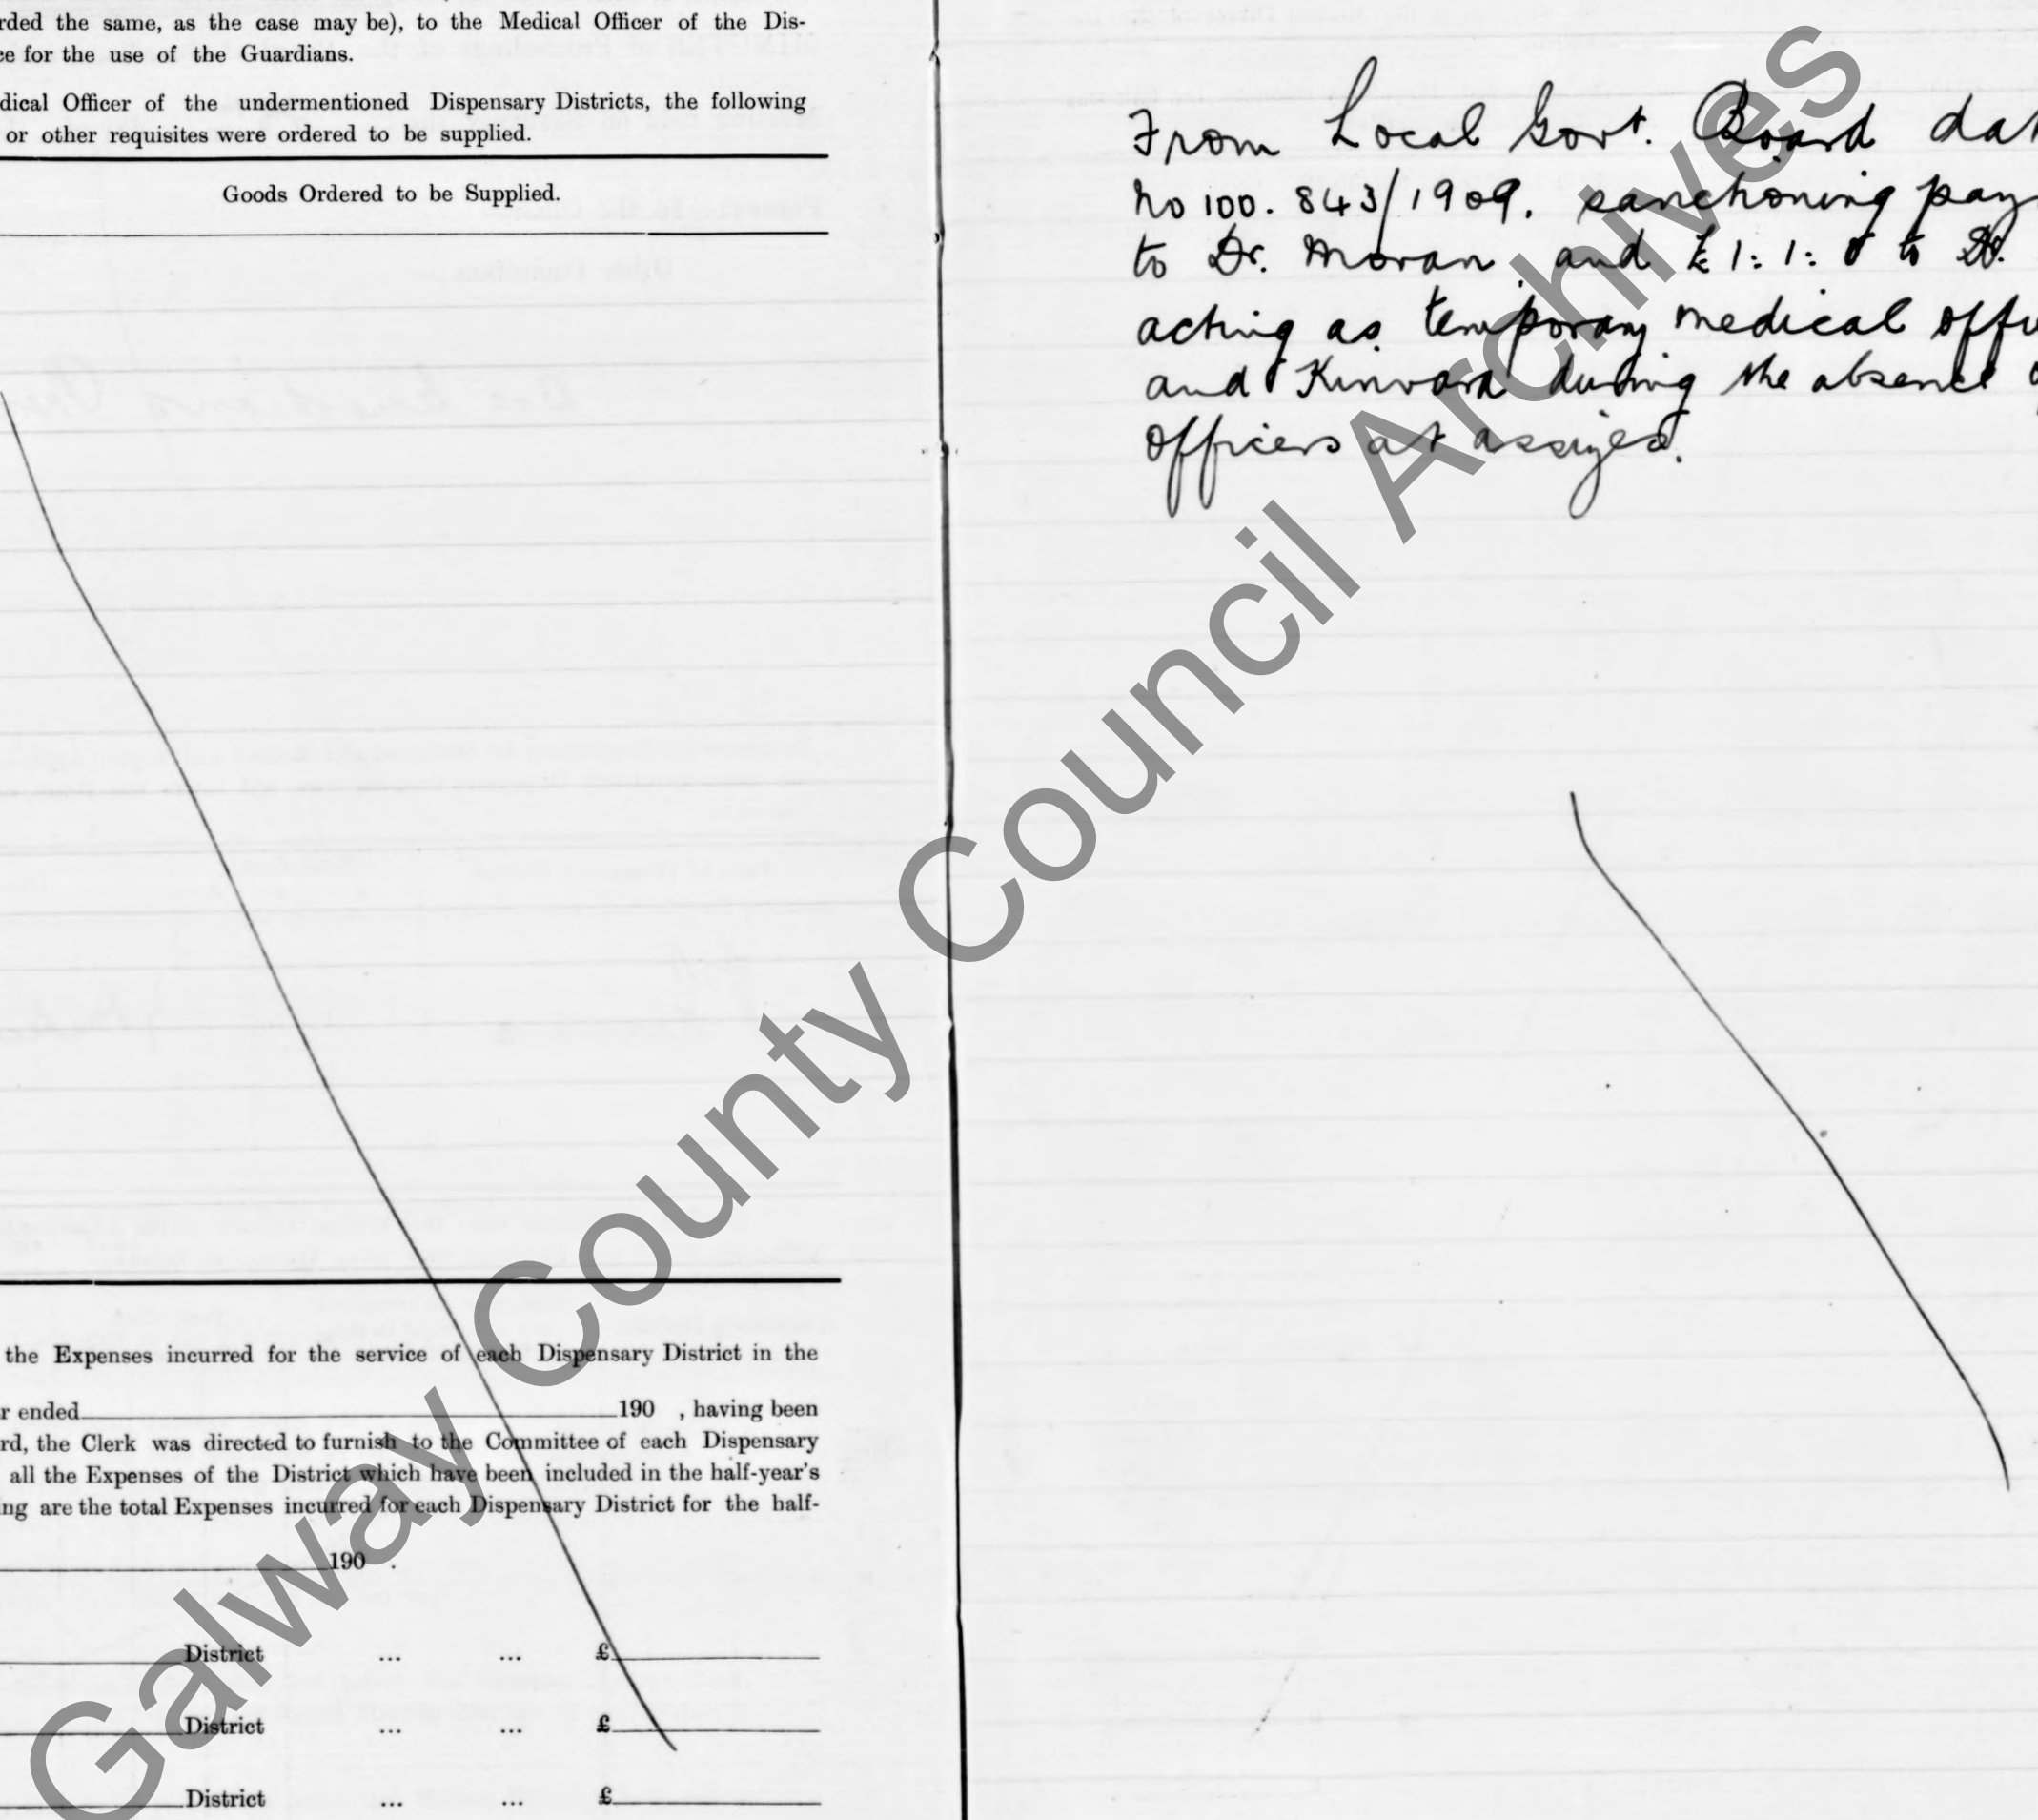 rded the same, as the case may be), to the Medical Officer of the Dis-
ce for the use of the Guardians.
dical Officer of the undermentioned Dispensary Districts, the following
or other requisites were ordered to be supplied.
Goods Ordered to be Supplied.
the Expenses incurred for the service of each Dispensary District in the
r ended 190 , having been
rd, the Clerk was directed to furnish to the Committee of each Dispensary
all the Expenses of the District which have been included in the half-year's
ing are the total Expenses incurred for each Dispensary District for the half-
190 .
District ... ... £
District ... ... £
District ... ... £
From Local Govt. Board dat
No 100. 843/1909. sanctioning pay
to Dr. Moran and £1:1:0 to Dr.
acting as temporary medical offi
and Kinvara during the absence o
officers at assizes.
Galway County Council Archives